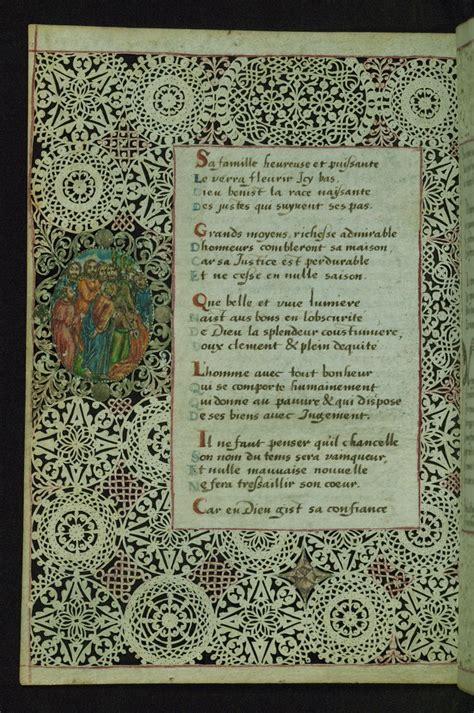 Sa famille heureuse et puissante
Le verra fleurir Icy bas,
Dieu benist la race naissante
Des justes qui suyuent ses pas.
Grands moyens, richesse admirable
Dhonneurs combleront sa maison,
Car sa Justice est perdurable
Et ne cesse en nulle saison.
Que belle et viue lumiere
Naist aus bons en lobscurite
De Dieu la splendeur coustumiere,
Doux clement & plein dequite
L'homme avec tout bonheur
Qui se comporte humainement
Qui donne au pauure & qui dispose
De ses biens avec Jugement.
Il ne faut penser quil chancelle
Son nom du tems sera vainqueur,
Et nulle mauuaise nouuelle
Ne fera tressaillir son coeur.
Car en Dieu gist sa confiance